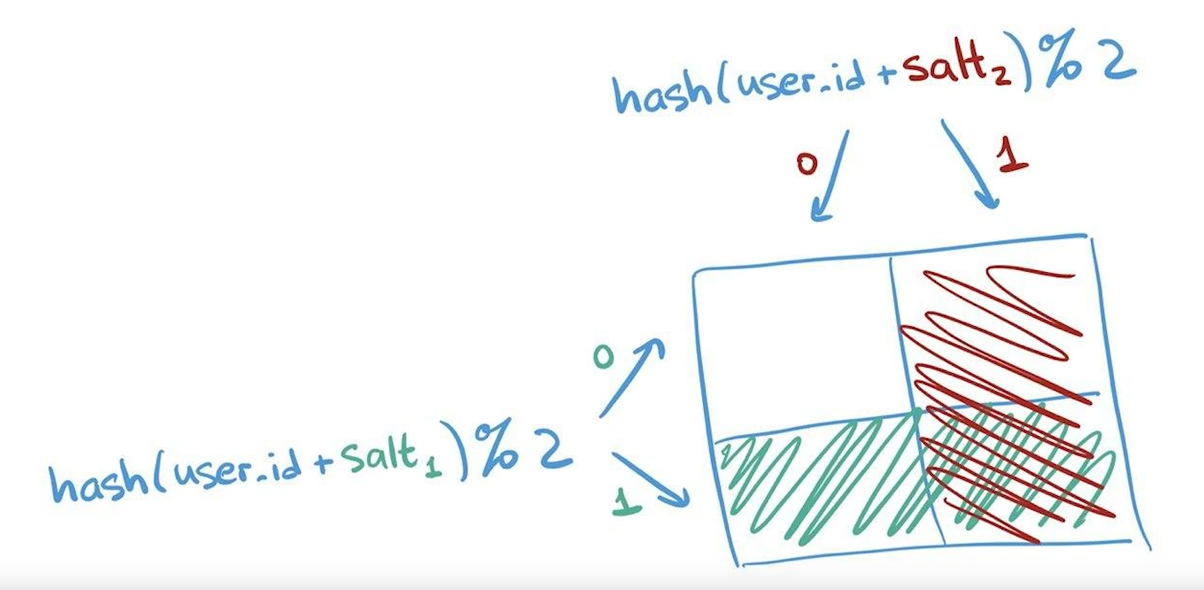 hash(user.id + salt₂) % 2
0
1
0
hash(user.id + salt₁) % 2
1